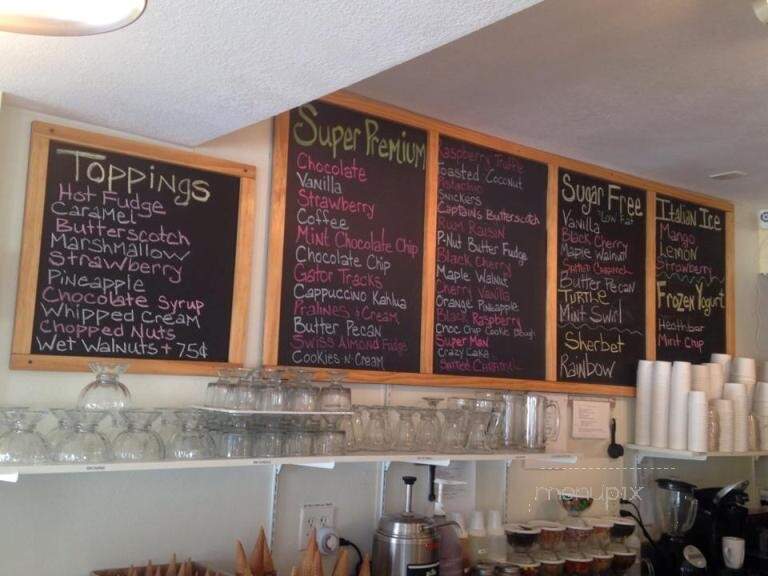 Toppings
Hot Fudge
Caramel
Butterscotch
Marshmallow
Strawberry
Pineapple
Chocolate Syrup
Whipped Cream
Chopped Nuts
Wet Walnuts + 75¢
Super Premium
Chocolate
Vanilla
Strawberry
Coffee
Mint Chocolate Chip
Chocolate Chip
Gator Tracks
Cappuccino Kahlua
Pralines & Cream
Butter Pecan
Swiss Almond Fudge
Cookies-N-Cream
Raspberry Truffle
Toasted Coconut
Pistachio
Snickers
Captains Butterscotch
Rum Raisin
P-Nut Butter Fudge
Black Cherry
Maple Walnut
Cherry Vanilla
Orange Pineapple
Black Raspberry
Choc Chip Cookie Dough
Super Man
Crazy Cake
Salted Caramel
Sugar Free
Low Fat
Vanilla
Black Cherry
Maple Walnut
Salted Caramel
Butter Pecan
Turtle
Mint Swirl
Sherbet
Rainbow
Italian Ice
Mango
Lemon
Strawberry
Frozen Yogurt
Heathbar
Mint Chip
menupix